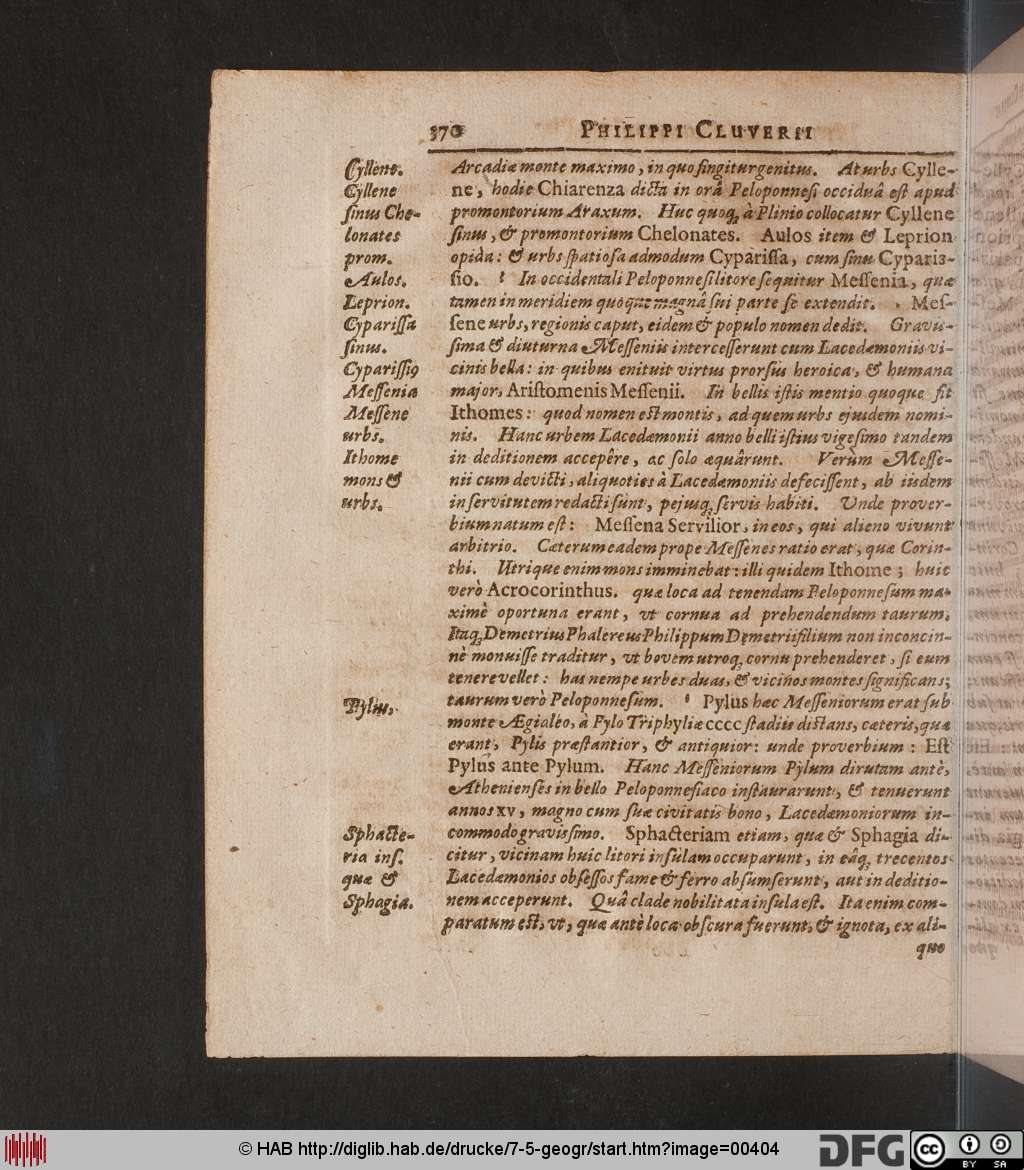 370 PHILIPPI CLUVERII
Cyllene.
Cyllene
ſinus Che-
lonates
prom.
Aulos.
Leprion.
Cypariſſa
ſinus.
Cypariſſiꝰ
Meſſenia
Meſſene
urbs.
Ithome
mons &
urbs.
Pylus.
Sphacte-
ria inſ.
quæ &
Sphagia.
Arcadiæ monte maximo, in quo fingitur genitus. At urbs Cylle-
ne, hodie Chiarenza dicta in orâ Peloponneſi occiduâ eſt apud
promontorium Araxum. Huc quoq; à Plinio collocatur Cyllene
ſinus, & promontorium Chelonates. Aulos item & Leprion
opida: & urbs ſpatioſa admodum Cypariſſa, cum ſinu Cypariſ-
ſio. In occidentali Peloponneſi litore ſequitur Meſſenia, quæ
tamen in meridiem quoque magnâ ſui parte ſe extendit. Meſ-
ſene urbs, regionis caput, eidem & populo nomen dedit. Graviſ-
ſima & diuturna Meſſeniis interceſſerunt cum Lacedæmoniis vi-
cinis bella: in quibus enituit virtus prorſus heroica, & humana
major, Ariſtomenis Meſſenii. In bellis iſtis mentio quoque fit
Ithomes: quod nomen eſt montis, ad quem urbs ejusdem nomi-
nis. Hanc urbem Lacedæmonii anno belli iſtius vigeſimo tandem
in deditionem accepêre, ac ſolo æquârunt. Verùm Meſſe-
nii cum devicti, aliquoties à Lacedæmoniis defeciſſent, ab iisdem
in ſervitutem redacti ſunt, pejusq; ſervis habiti. Unde prover-
bium natum eſt: Meſſena Servilior, in eos, qui alieno vivunt
arbitrio. Cæterum eadem prope Meſſenes ratio erat, quæ Corin-
thi. Utrique enim mons imminebat: illi quidem Ithome; huic
verò Acrocorinthus. quæ loca ad tenendam Peloponneſum ma-
ximè oportuna erant, vt cornua ad prehendendum taurum.
Itaq; Demetrius Phalereus Philippum Demetrii filium non inconcin-
nè monuiſſe traditur, vt bovem utroq; cornu prehenderet, ſi eum
tenere vellet: has nempe urbes duas, & vicinos montes ſignificans;
taurum verò Peloponneſum. Pylus hæc Meſſeniorum erat ſub
monte Ægialeo, à Pylo Triphyliæ cccc ſtadiis diſtans, cæteris, quæ
erant, Pylis præſtantior, & antiquior: unde proverbium: Eſt
Pylus ante Pylum. Hanc Meſſeniorum Pylum dirutam antè,
Athenienſes in bello Peloponneſiaco inſtaurarunt, & tenuerunt
annos xv, magno cum ſuæ civitatis bono, Lacedæmoniorum in-
commodo graviſſimo. Sphacteriam etiam, quæ & Sphagia di-
citur, vicinam huic litori inſulam occuparunt, in eâq; trecentos
Lacedæmonios obſeſſos fame & ferro abſumſerunt, aut in deditio-
nem acceperunt. Quâ clade nobilitata inſula eſt. Ita enim com-
paratum eſt, vt, quæ antè loca obſcura fuerunt, & ignota, ex ali-
quo
© HAB http://diglib.hab.de/drucke/7-5-geogr/start.htm?image=00404
DFG
cc
BY SA